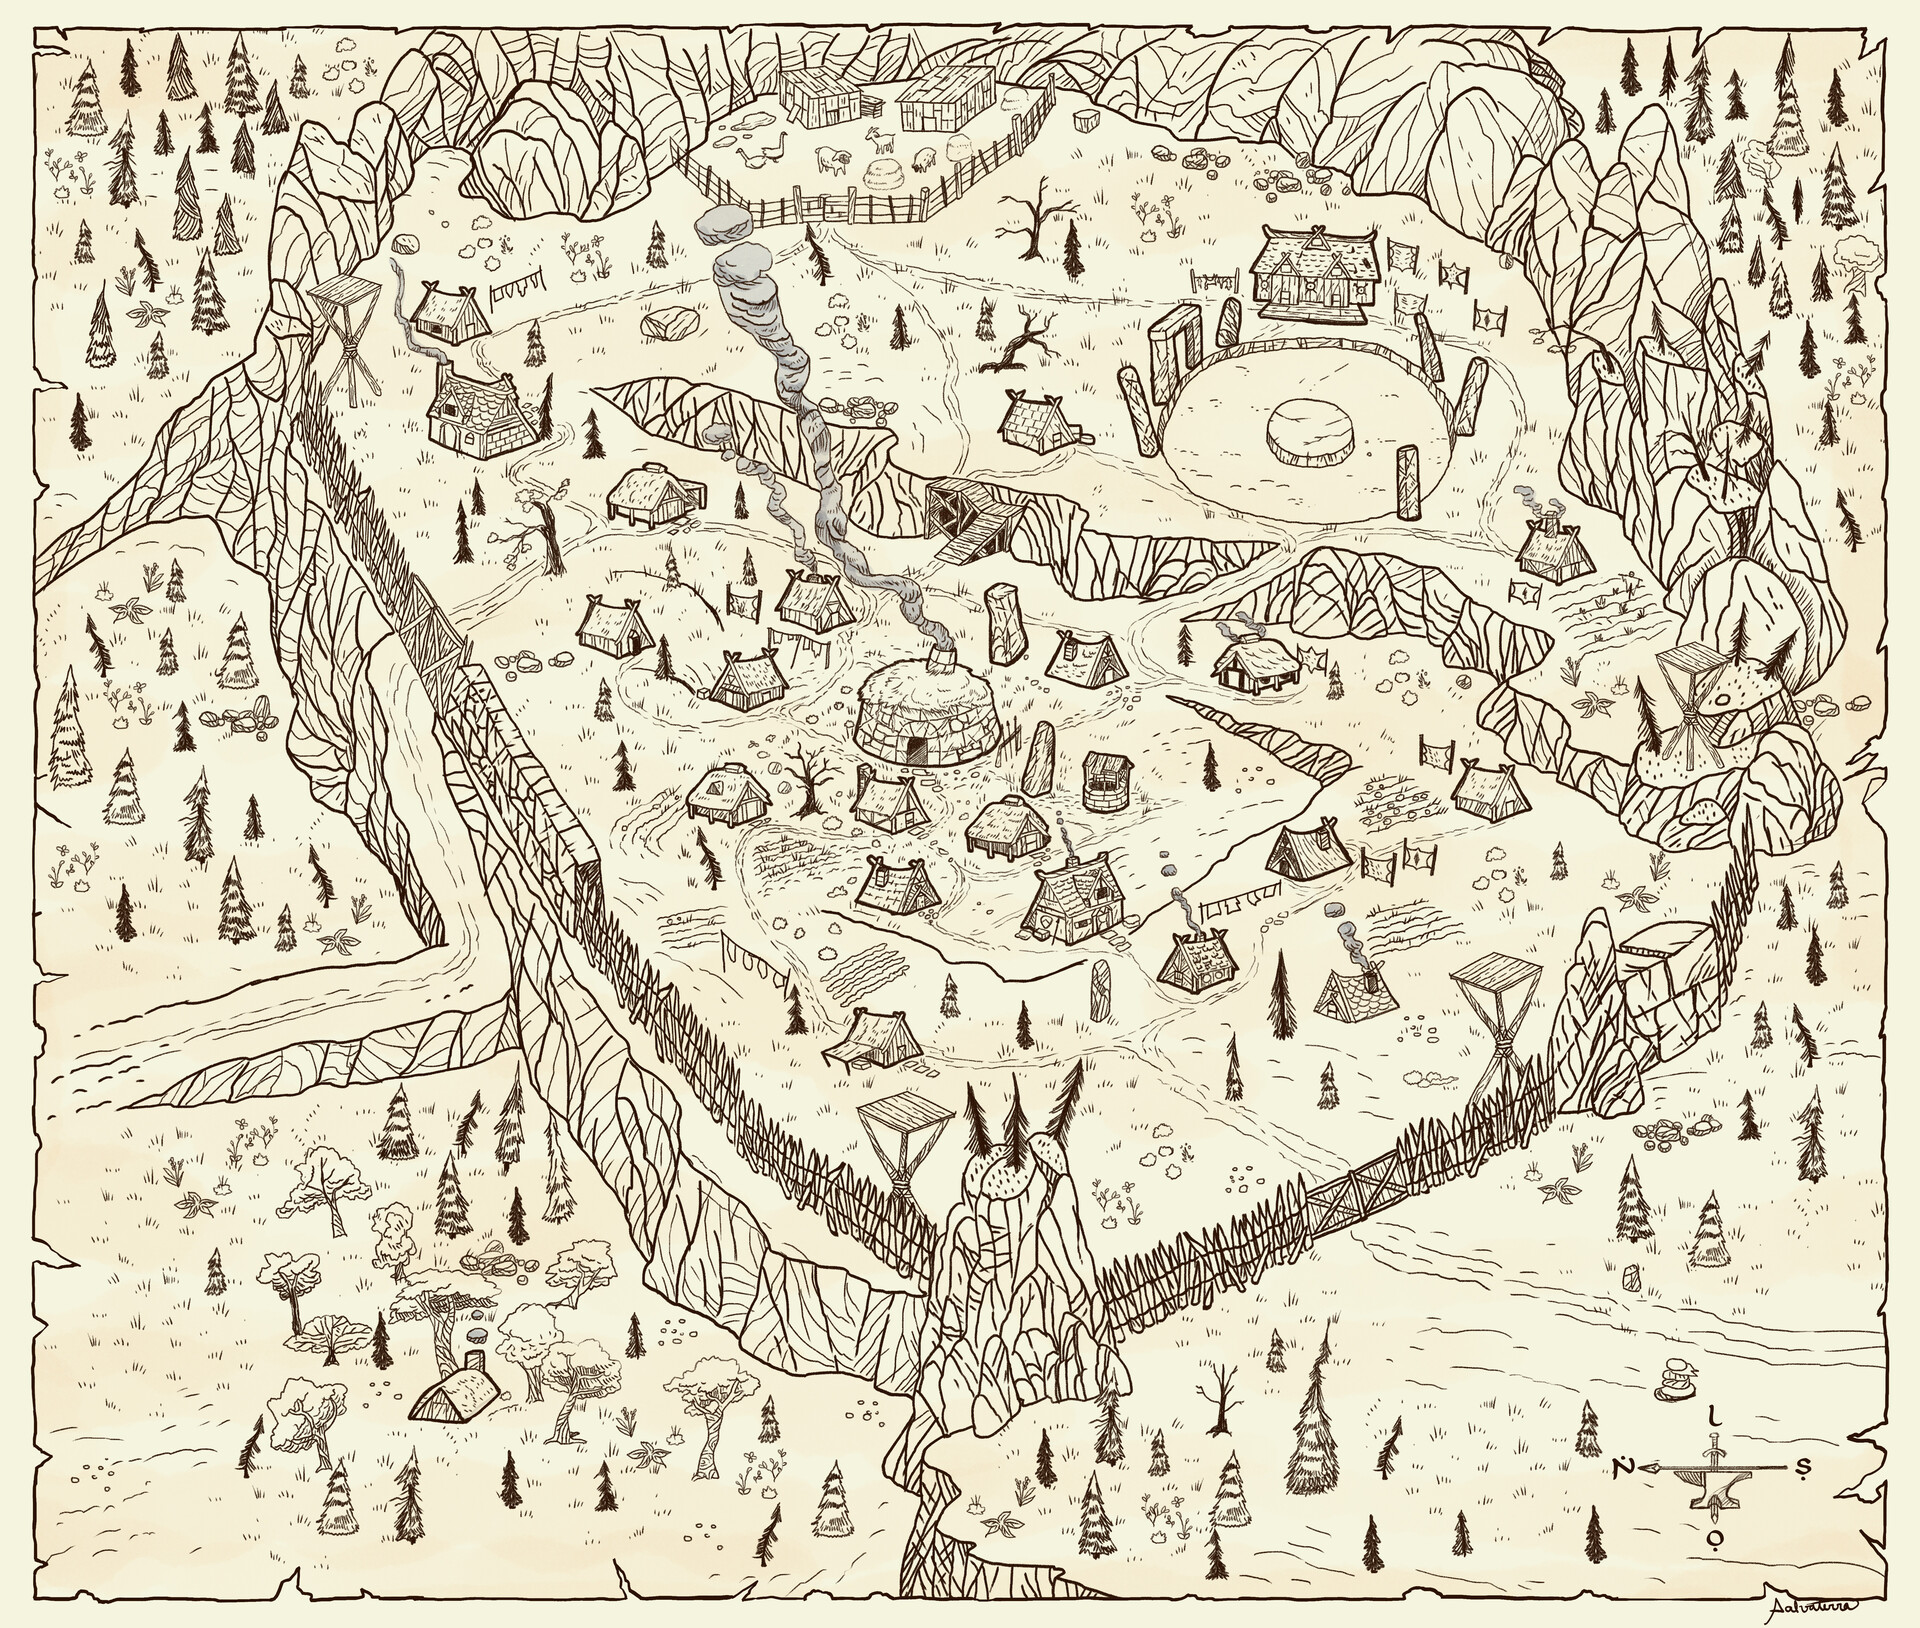 L
N S
O
Salvaterra